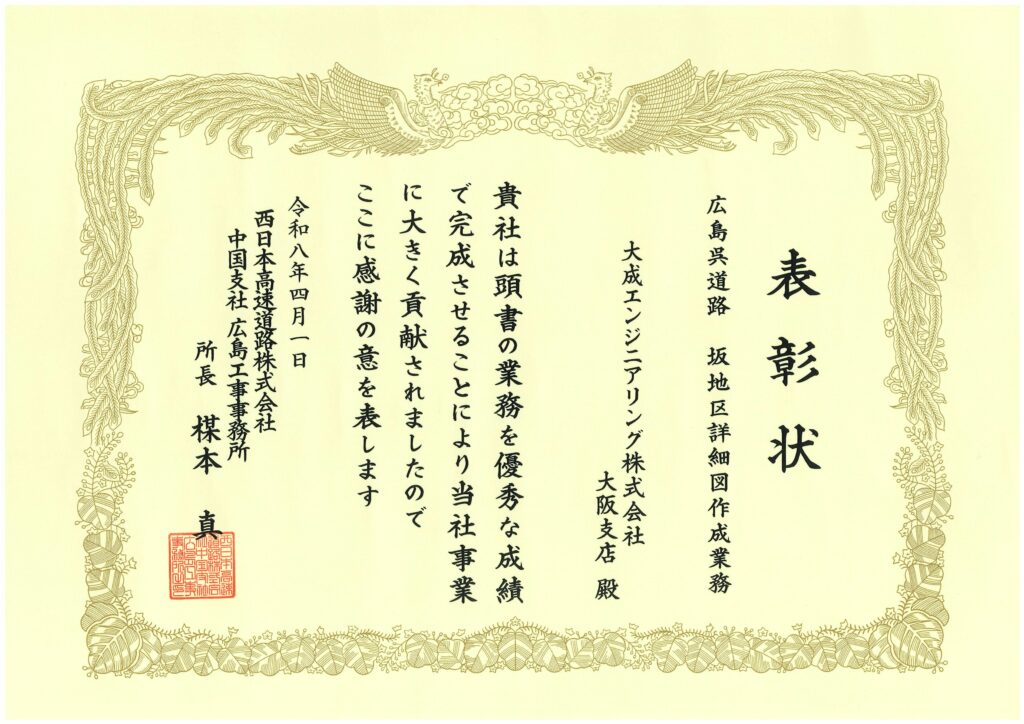 表彰状
広島呉道路 坂地区詳細図作成業務
大成エンジニアリング株式会社
大阪支店 殿
貴社は頭書の業務を優秀な成績
で完成させることにより当社事業
に大きく貢献されましたので
ここに感謝の意を表します
令和八年四月一日
西日本高速道路株式会社
中国支社 広島工事事務所
所長 楳本 真